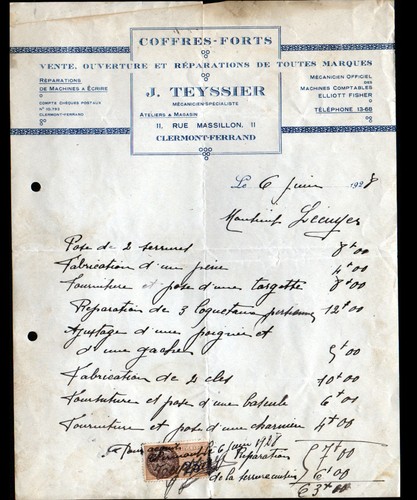 COFFRES-FORTS
VENTE, OUVERTURE ET RÉPARATIONS DE TOUTES MARQUES
RÉPARATIONS
DE MACHINES A ÉCRIRE
COMPTE CHÈQUES POSTAUX
N° 10.793
CLERMONT-FERRAND
J. TEYSSIER
MÉCANICIEN-SPÉCIALISTE
ATELIERS & MAGASIN
11, RUE MASSILLON, 11
CLERMONT-FERRAND
MÉCANICIEN OFFICIEL
DES
MACHINES COMPTABLES
ELLIOTT FISHER
TÉLÉPHONE 13-66
Le 6 juin 1928
Monsieur
Pose de 2 serrures 8f00
Fabrication d'un pène 4f00
Fourniture et pose d'une targette 8f00
Réparation de 3 loqueteaux 12f00
Ajustage d'une poignée et
d'une gache 5f00
Fabrication de 2 clés 10f00
Fourniture et pose d'une bascule 6f00
Fourniture et pose d'une charnière 4f00
Pour acquit
6 juin 1928
Réparation
de la 6f00
63f00